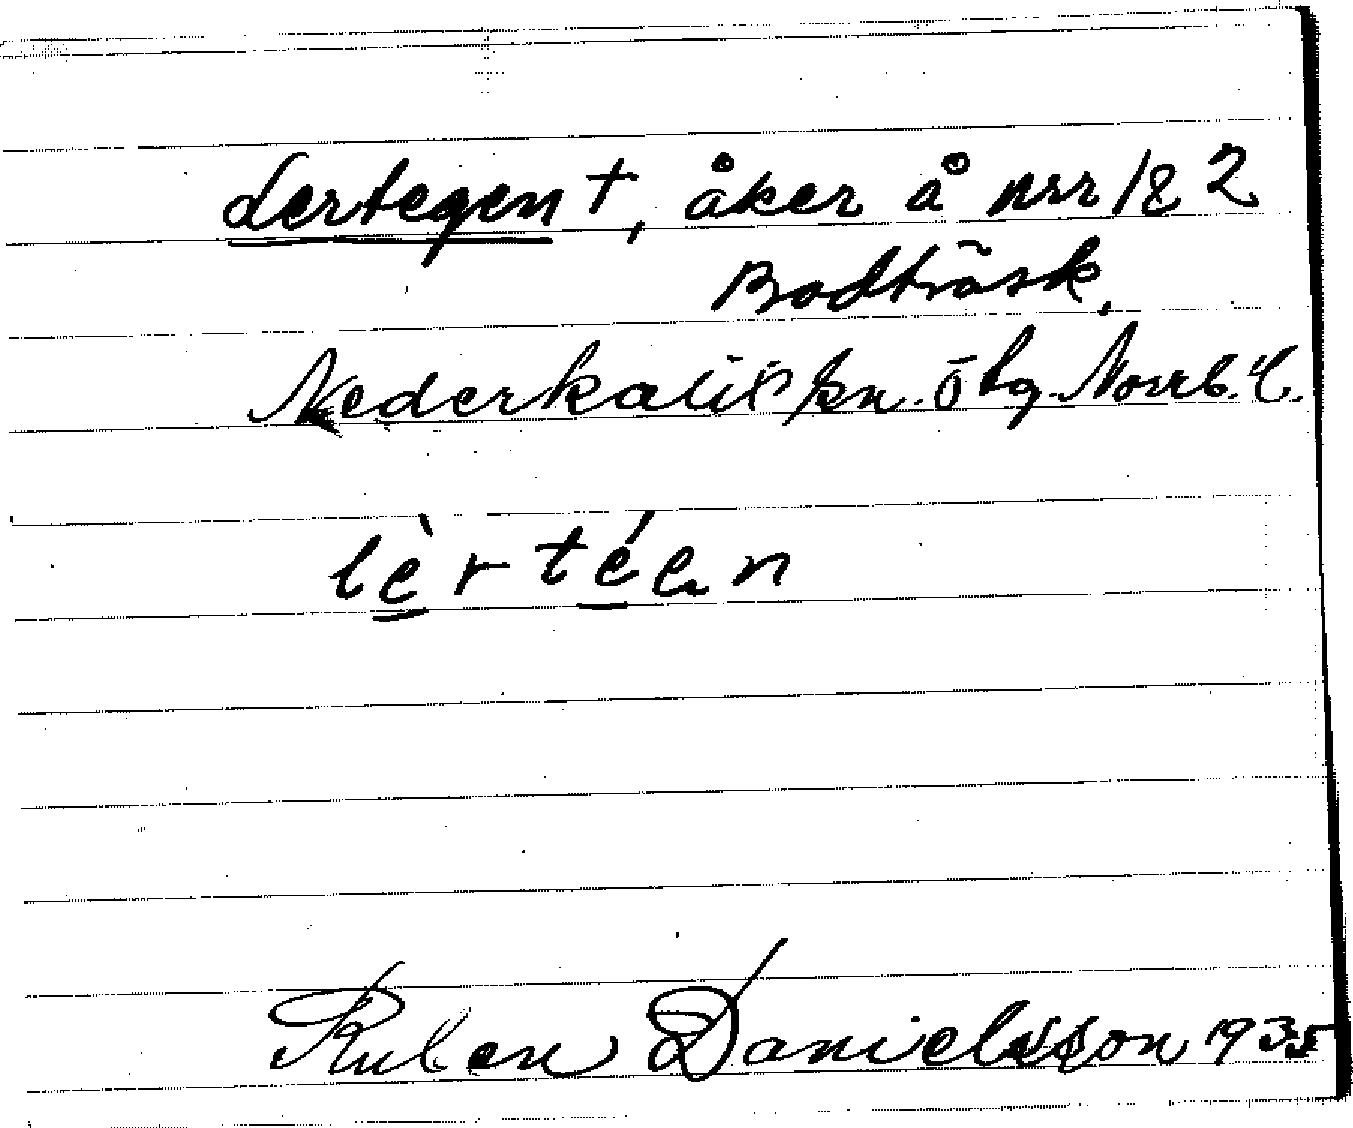 Lertegen †, åker å nrr 1 & 2
Bodträsk,
Nederkalix sn. Ö bg. Norrb. l.
lèrtéen
Ruben Danielsson 1935